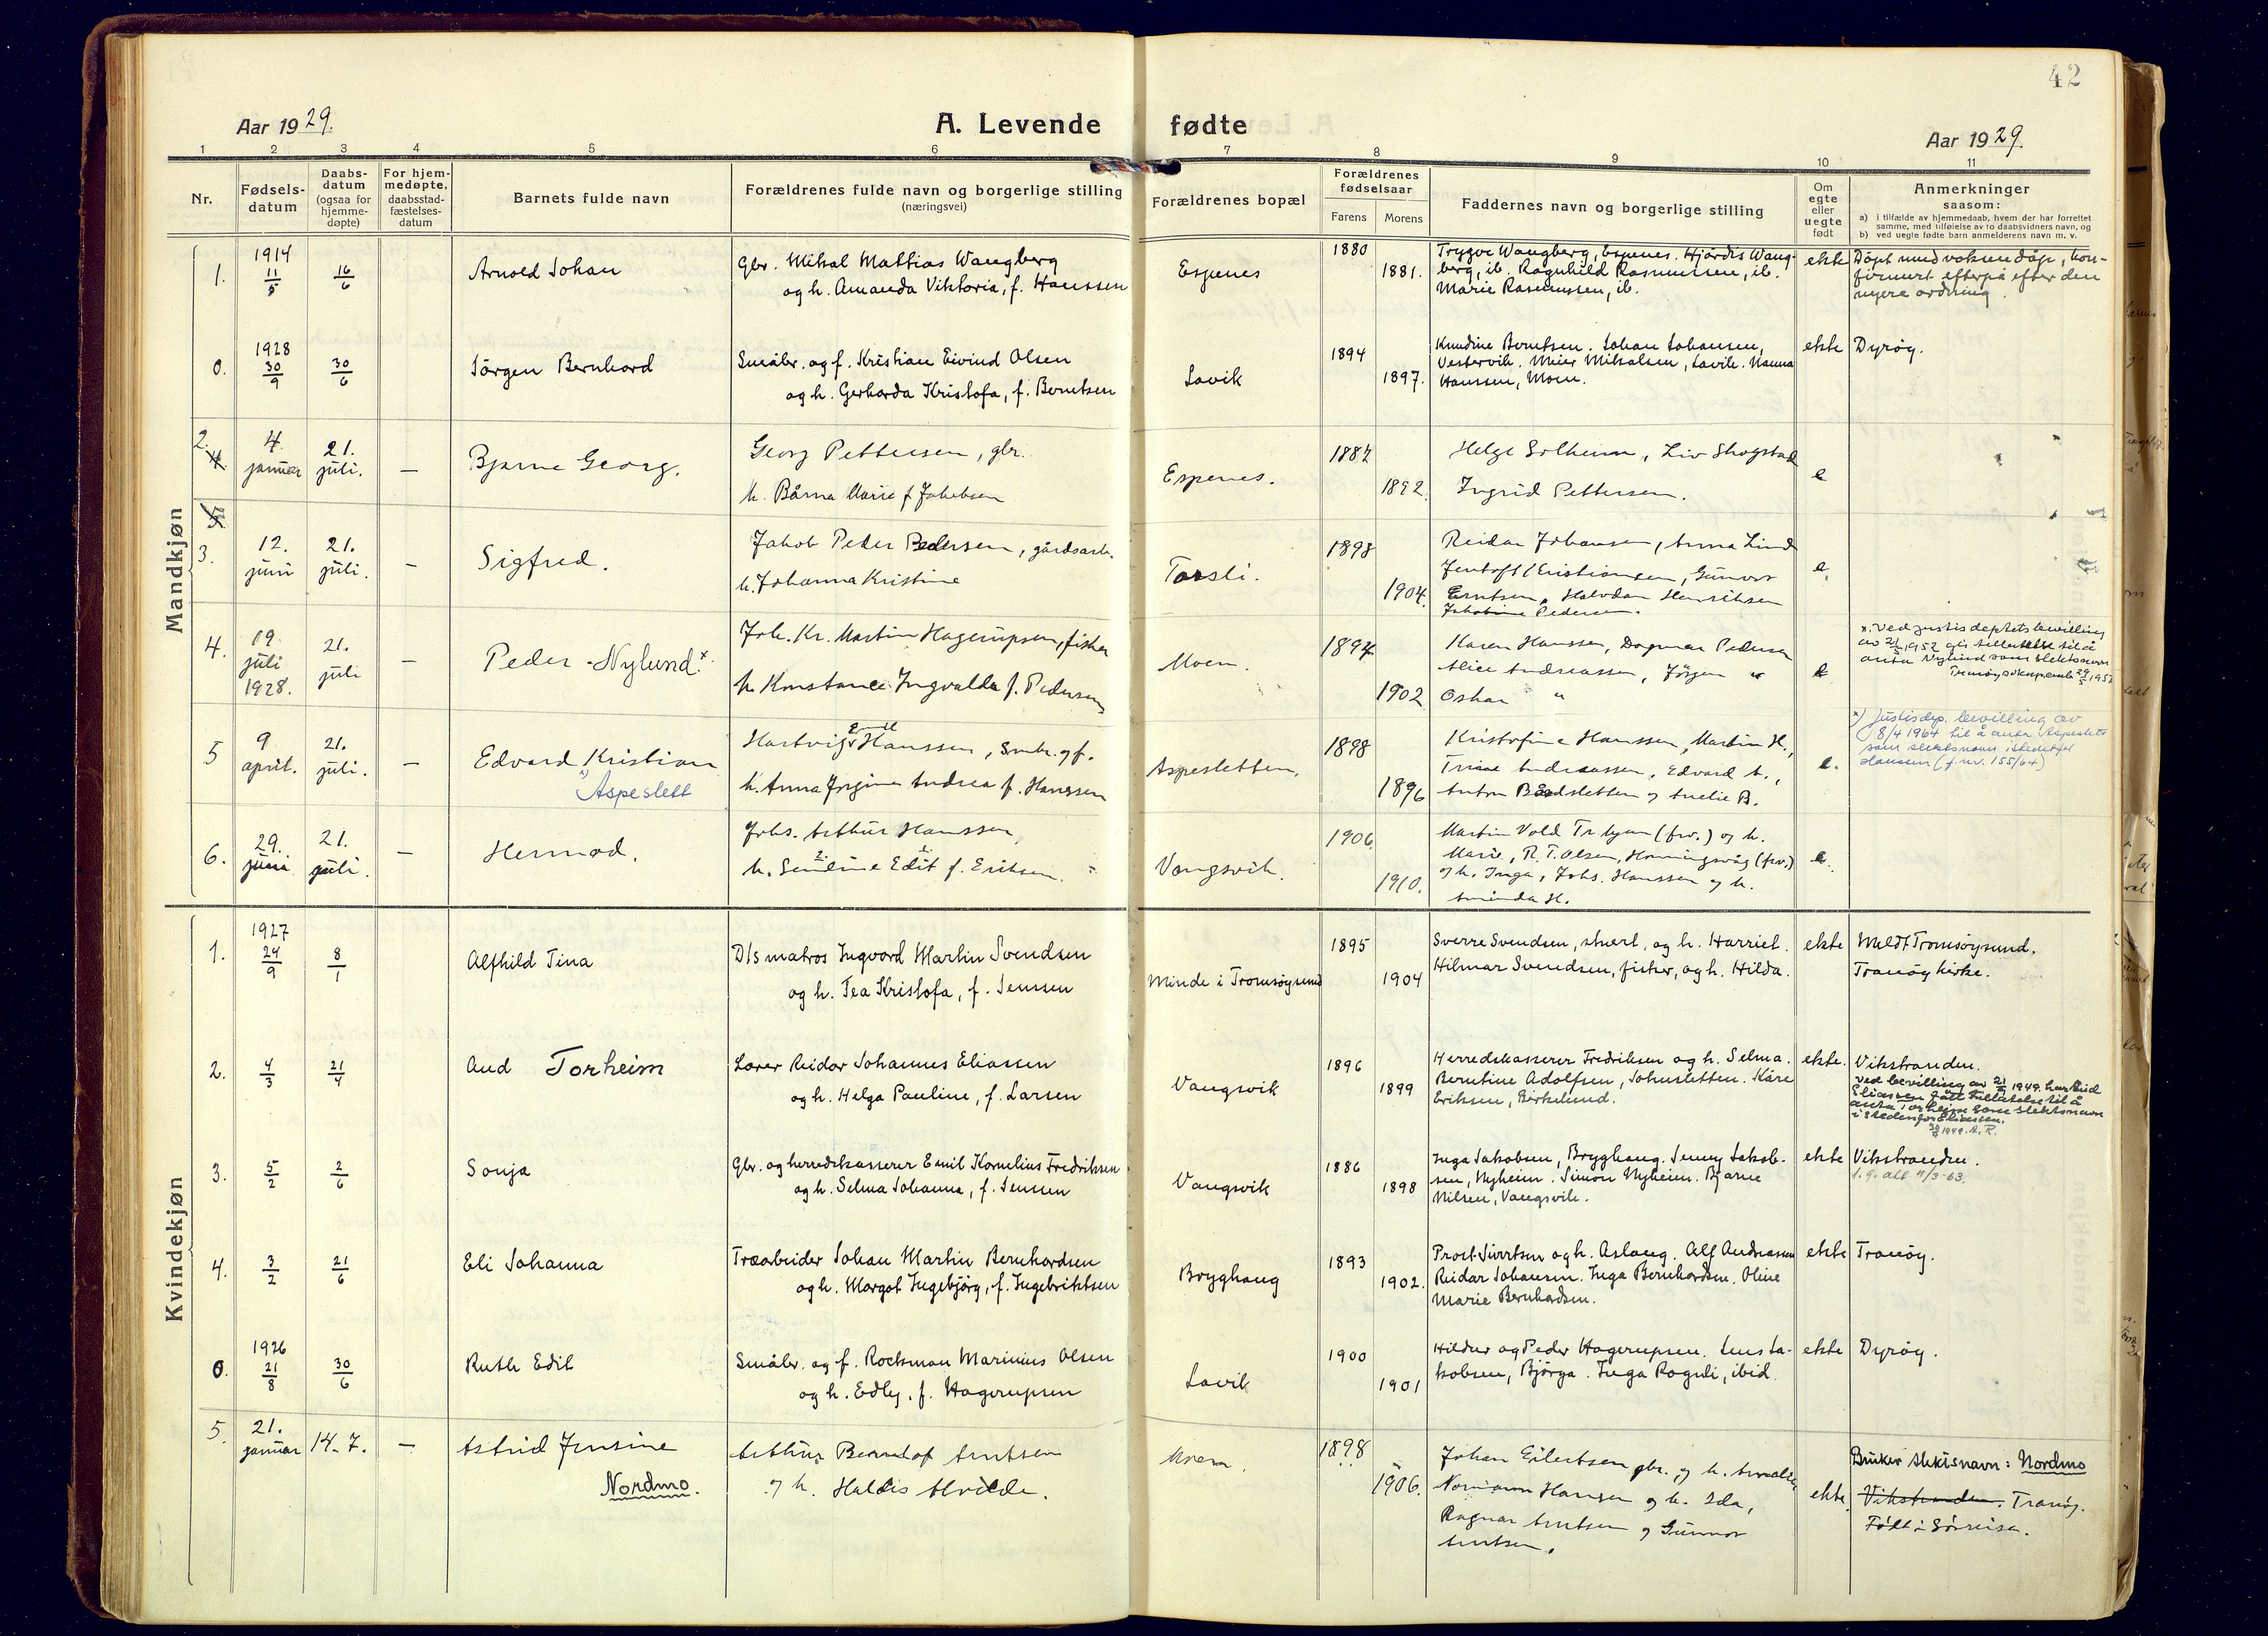 42
Aar 1929.
A. Levende fødte
Aar 1929.
1 2 3 4 5 6 7 8 9 10 11
Nr.
Fødsels-
datum
Daabs-
datum
(ogsaa for
hjemme-
døpte)
For hjem-
medøpte,
daabsstad-
fæstelses-
datum
Barnets fulde navn
Forældrenes fulde navn og borgerlige stilling
(næringsvei)
Forældrenes bopæl
Forældrenes
fødselsaar
Farens
Morens
Faddernes navn og borgerlige stilling
Om
egte
eller
uegte
født
Anmerkninger
saasom:
a) i tilfælde av hjemmedaab, hvem der har forrettet
samme, med tilføielse av to daabsvidners navn, og
b) ved uegte fødte barn anmelderens navn m. v.
Mandkjøn
1.
1914
11/5
16/6
Arnold Johan
Gbr. Mikal Mathias Wangberg
og h. Amanda Viktoria, f. Hanssen
Espenes
1880
1881.
Trygve Wangberg, Espenes. Hjördis Wang-
berg, ib. Ragnhild Rasmussen, ib.
Marie Rasmussen, ib.
ekte
Döpt med voksendåp, kon-
firmert efterpå efter den
nyere ordning.
0.
1928
30/9
30/6
Jörgen Bernhard
Småbr. og f. Kristian Eivind Olsen
og h. Gerharda Kristofa, f. Berntsen
Lavik
1894
1897.
Knudine Berntsen. Johan Johansen,
Vestervik. Meier Mikalsen, Lavik. Nanna
Hanssen, Moen.
ekte
Dyröy.
2.
4.
januar
21.
juli.
—
Bjarne Georg.
Georg Pettersen, gbr.
h. Bårna Marie f Jakobsen
Espenes.
1887
1892.
Helge Solheim, Liv Skogstad
Ingrid Pettersen.
e
3.
12.
juni
21.
juli.
—
Sigfred.
Jakob Peder Pedersen, gårdsarb.
h. Johanna Kristine
Torsli.
1898
1904.
Reidar Johansen, Anna Lind
Jentoft Kristiansen, Gunvor
Erntsen, Halvdan Henriksen
Jakobine Pedersen.
e.
4.
19.
juli
1928.
21.
juli
—
Peder Nylund.x
Joh. Kr. Martin Hagerupsen, fisker
h. Konstance Ingvalda f. Pedersen
Moen.
1897
1902
Karen Hanssen, Dagmar Pedersen
Alice Andreassen, Jörgen "
Oskar "
e
x. Ved justisdeptets bevilling
av 21/5 1952 gis tillatelse til å
anta Nylund som slektsnavn
5
9
april.
21.
juli.
—
Edvard Kristian
x) Aspeslett
Hartvig Emil Hanssen, småbr. og f.
h. Anna Jörgine Andrea f. Hanssen
Aspesletten.
1898
1896
Kristofine Hanssen, Martin H.,
Trine Andreassen, Edvard A.,
Anton Bredsletten og Amelie B.
e.
x) Justisdep. bevilling av
8/4 1964 til å anta Aspeslett
som slektsnavn istedetfor
Hansen (j.nr. 155/64)
6.
29.
juni
21.
juli.
—
Hermod.
Johs. Arthur Hanssen,
h. Sendine Edit f. Eriksen.
Vangsvik.
1906
1910.
Martin Vold Trkjem (frv.) og h.
Marie, R. T. Olsen, Honningsvåg (frv.)
og h. Inga, Johs. Hanssen og h.
Aminda H.
e.
Kvindekjøn
1.
1927
24/9
8/1
Alfhild Tina
D/s matros Ingvard Martin Svendsen
og h. Tea Kristofa, f. Jenssen
Minde i Tromsöysund
1895
1904
Sverre Svendsen, stuert, og h. Harriet.
Hilmar Svendsen, fisker, og h. Hilda.
ekte
Meldt Tromsöysund.
Tranöy kirke.
2.
4/3
21/4
Aud Torheim
Lærer Reidar Johannes Eliassen
og h. Helga Pauline, f. Larsen
Vangsvik
1896
1899
Herredskasserer Fredriksen og h. Selma.
Berntine Adolfsen, Johnsletten. Kåre
Eriksen, Birkelund.
ekte.
Vikstranden.
Ved bevilling av 21/5 1949 har Aud
Eliassen fått tillatelse til å
anta Torheim som slektsnavn
istedenfor Eliassen.
3.
5/2
2/6
Sonja
Gbr. og herredskasserer Emil Kornelius Fredriksen
og h. Selma Johanna, f. Jenssen
Vangsvik
1886
1898
Inga Jakobsen, Bryghaug. Jenny Jakob-
sen, Nyheim. Simon Nyheim. Bjarne
Nilsen, Vangsvik.
ekte
Vikstranden.
l. g. att 11/3-63.
4.
3/2
21/6
Eli Johanna
Træarbeider Johan Martin Bernhardsen
og h. Margot Ingebjörg, f. Ingebriktsen
Bryghaug
1893
1902.
Prost Sivertsen og h. Aslaug. Alf Andreassen
Reidar Johansen. Inga Bernhardsen. Oline
Marie Bernhardsen.
ekte
Tranöy.
0.
1926
21/8
30/6
Ruth Edit
Småbr. og f. Rochman Marinius Olsen
og h. Edly, f. Hagerupsen
Lavik
1900
1901
Hildur og Peder Hagerupsen. Jens Ja-
kobsen, Bjorga. Inga Ragnli, ibid.
ekte
Dyröy.
5.
21.
januar
14-7.
—
Astrid Jensine
Nordmo.
Arthur Berntof Arntsen
og h. Haldis Alvilde.
Moen.
1898
1906.
Johan Eilertsen gbr. og h. Amalie,
Normann Hansen og h. Ida,
Ragnar Arntsen og Gunnor
Arntsen.
ekte.
Bruker slektsnavn: Nordmo
Vikstranden. Tranöy.
Født i Sörreisa.